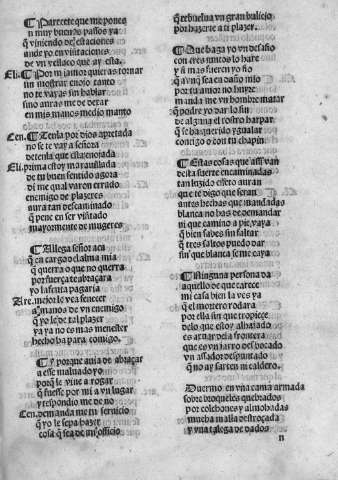 ¶ Parecete que me pones
n muy buenos passos ya
q̃ viniendo de estaciones
ande yo en visitaciones
de vn vellaco que ay esta.
Eli. ¶ Por mi amor quieras tornar
sin mostrar enojo tanto
no te vayas sin hablar
sino auras me de dexar
en mis manos medio manto
Cen. ¶ Tenla por dios apretada
no se te vaya señora
detenla que esta enojada
Eli. prima estoy marauillada
de tu buen sentido agora
di me qual varon errado
enemigo de plazeres
aura tan descaminado
que pene en ser visitado
mayormente de mugeres
¶ Allega señor aca
q̃ en cargo el alma mia
q̃ querra o que no querra
por fuerça te abraçara
yo saldria pagaria
Are. mejor le vea fenecer
a manos de vn enemigo
q̃ yo le de tal plazer
ya ya no es mas menester
hecho ha para comigo.
¶ Y porque auia de abraçar
a esse maluado yo
porq̃ le vine a rogar
q̃ fuesse por mi a vn lugar
y respondio me de no
Cen. demanda me tu seruicio
q̃ yo le sepa hazer
cosa q̃ sea de mi officio
q̃ rebuelua vn gran bulicio
por hazerte a ti plazer.
¶ Que haga yo vn desafio
con tres juntos lo hare
y si mas fueren yo fio
q̃ aunq̃ sea en daño mio
por tu amor no huyre
manda me vn hombre matar
q̃ podre yo dar lo fin
de alguna el rostro harpar
q̃ se ha querido ygualar
contigo o con tu chapin
¶ Estas cosas que assi van
desta suerte encaminadas
tan luzido effeto auran
que te digo que seran
antes hechas que mandadas
blanca no has de demandar
ni que camino a pie vaya
q̃ bien sabes sin faltar
q̃ tres saltos puedo dar
sin que blanca se me caya
¶ Ninguna persona da
aquello de que carece
mi casa bien la ves ya
q̃ el mortero rodara
por ella sin que tropiece
delo que estoy alhajado
es axuar dela frontera
que es vn jarro desbocado
vn assador despuntado
q̃ no ay sarten ni caldero.
Duermo en vna cama armada
sobre broqueles quebrados
por colchones y almohadas
mucha malla destroçada
y vna talega de dados
n